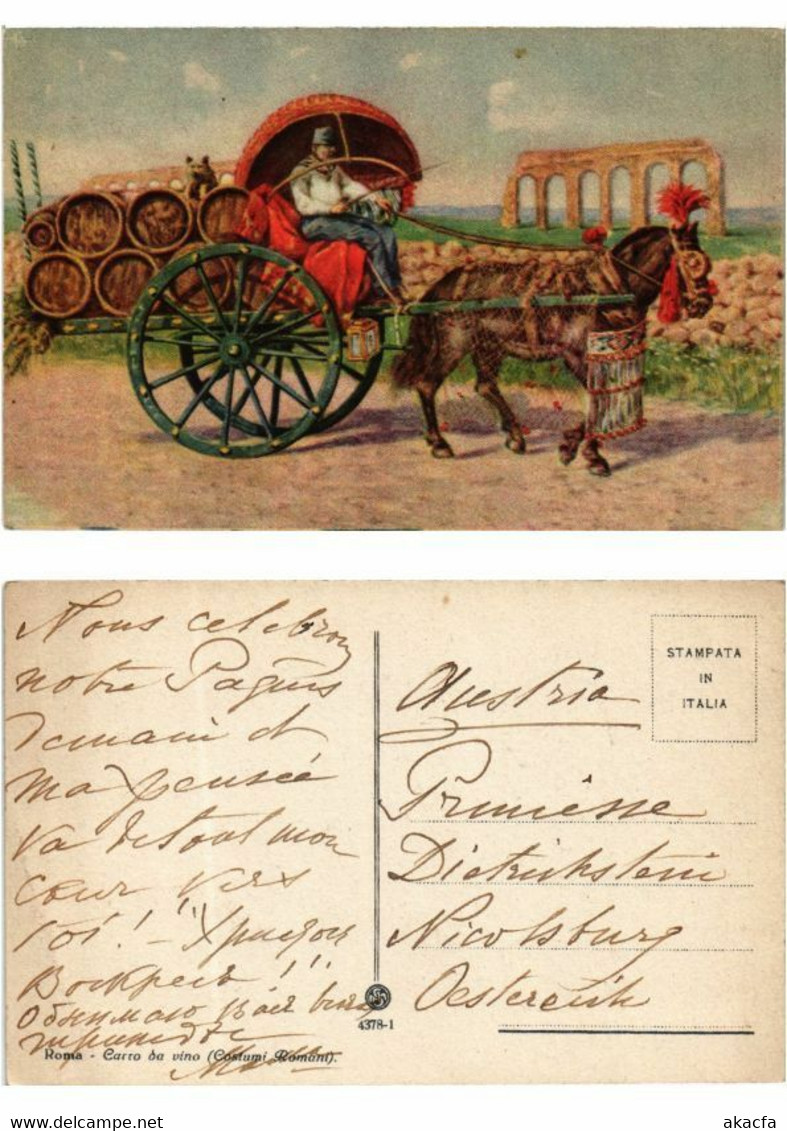 Nous celebrons
notre Pâques
demain et
ma pensée
va de tout mon
cœur vers
toi! - "Христос
Воскресъ"!!
Обнимаю васъ
Roma - Carro da vino (Costumi Romani).
4378-1
STAMPATA
IN
ITALIA
Austria
Princesse
Dietrichstein
Nicolsburg
Oesterreich
www.delcampe.net
akacfa